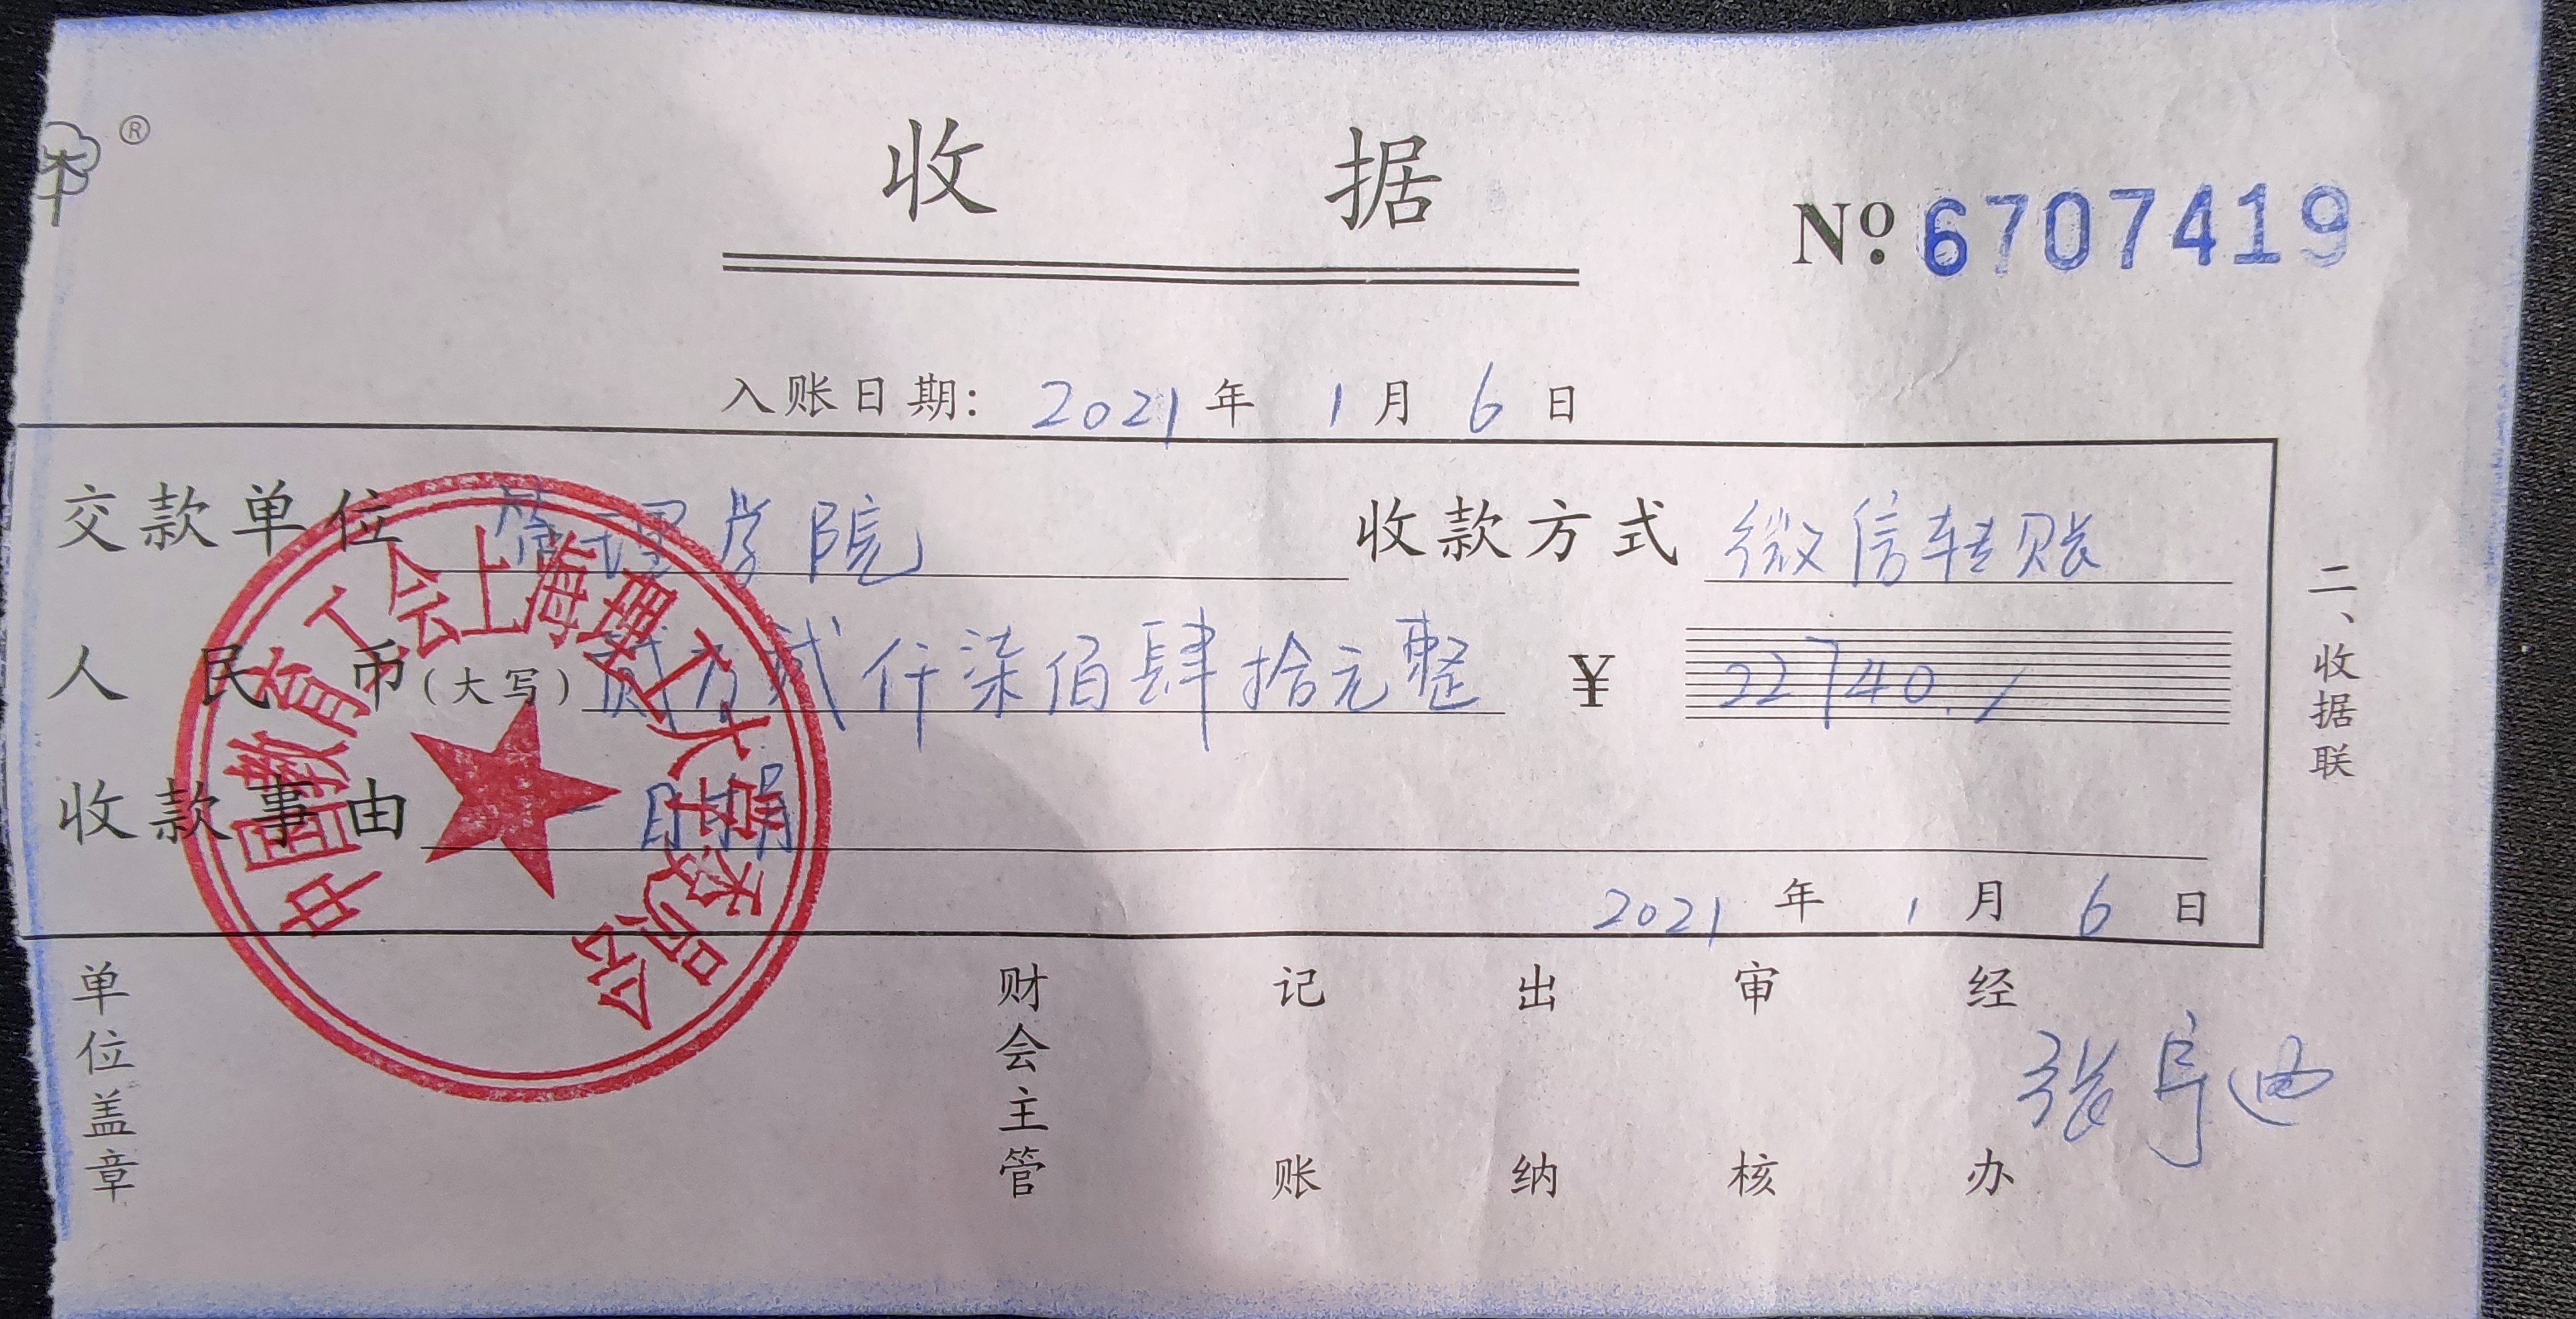 ®
收 据
№ 6707419
入账日期: 2021 年 1 月 6 日
交款单位 管理学院 收款方式 微信转账
人民币(大写) 贰万贰仟柒佰肆拾元整 ¥ 22740.
收款事由 一日捐
2021 年 1 月 6 日
单位盖章 财会主管 记账 出纳 审核 经办 张阜迪
二、收据联
中国教育工会上海理工大学委员会